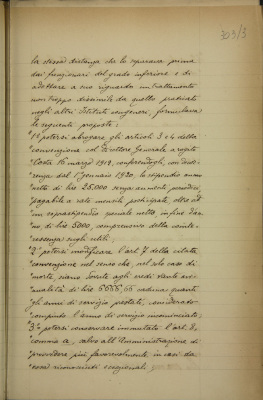 303/3
la stessa distanza che lo separava prima
dai funzionari del grado inferiore e di
adottare a suo riguardo un trattamento
non troppo dissimile da quello praticato
negli altri Istituti congeneri, formulava
le seguenti proposte:
1° potersi abrogare gli articoli 3 e 4 della
convenzione col Direttore Generale a rogito
Costa 16 marzo 1912, conferendogli, con decor-
renza dal 1° gennaio 1920, lo stipendio annuo
netto di lire 25.000 senza aumenti periodici,
pagabile a rate mensili posticipate, oltre ad
un soprastipendio speciale netto, infine d'an-
no di lire 5000, comprensivo della cointe-
ressenza negli utili.
2° potersi modificare l'art. 7 della citata
convenzione nel senso che, nel solo caso di
morte, siano dovute agli eredi tante an-
nualità di lire 6666,66 cadauna quanti
gli anni di servizio prestati, considerato
compiuto l'anno di servizio incominciato;
3° potersi conservare immutato l'art.
comma a, salvo all'Amministrazione di
provvedere più favorevolmente in casi da
essa riconosciuti eccezionali